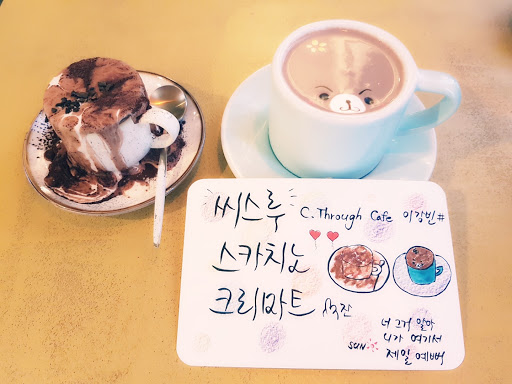 씨스루
C.Through Cafe 이강빈#
스카치노
크리마트 수잔
너 그거 알아
니가 여기서
제일 예뻐
sun